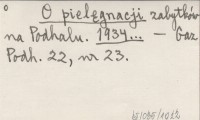 O pielęgnacji zabytków
na Podhalu. 1934... — Gaz
Podh. 22, nr 23.